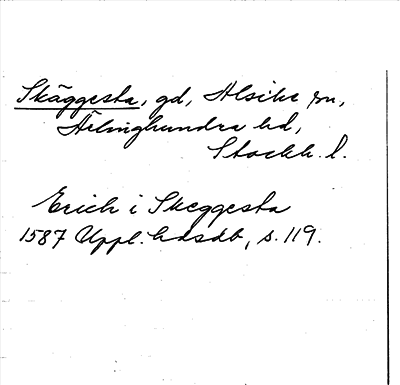 Skäggesta, gd, Alsike sn,
Ärlinghundra hd,
Stockh. l.
Erich i Skeggesta
1587 Uppl. hdsdb, s. 119.